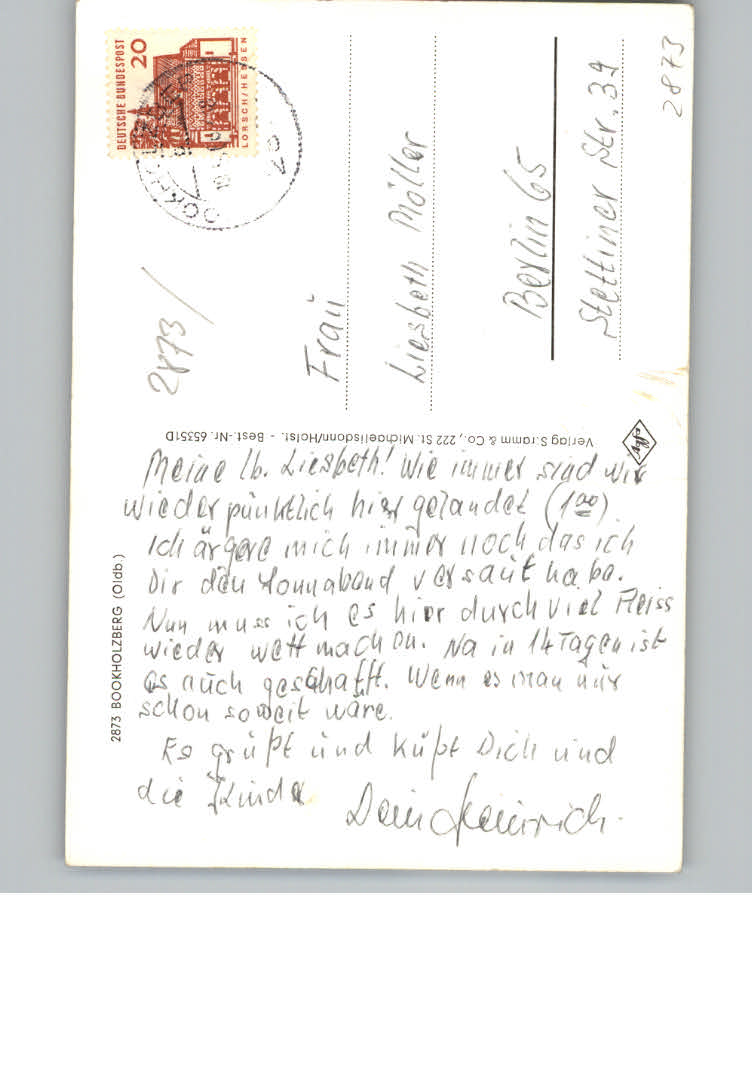 DEUTSCHE BUNDESPOST
20
LORSCH/HESSEN
2873
2873/
Frau
Liesbeth Möller
Berlin 65
Stettiner Str. 39
Verlag S.ramm & Co., 222 St. Michaelisdonn/Holst. - Best.-Nr. 65351D
2873 BOOKHOLZBERG (Oldb.)
Meine lb. Liesbeth! Wie immer sind wir
wieder pünktlich hier gelandet (1 00)
Ich ärgere mich immer noch das ich
Dir den Sonnabend versaut habe.
Nun muss ich es hier durch viel Fleiss
wieder wett machen. Na in 14 Tagen ist
es auch geschafft. Wenn es man nur
schon soweit wäre.
Es grüßt und küßt Dich und
die Kinder
Dein Heinrich.